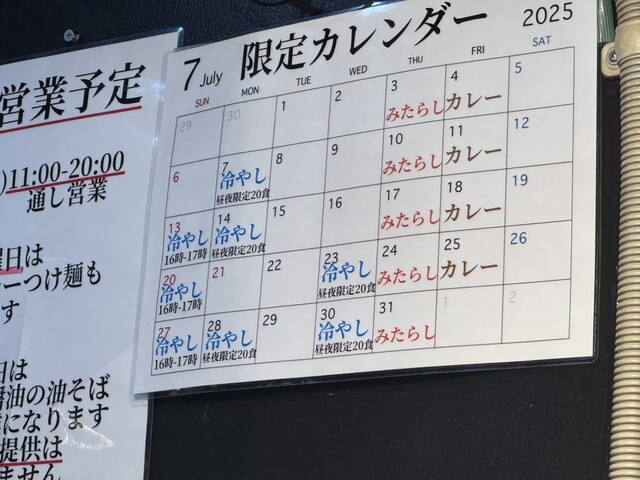 営業予定
)11:00-20:00
通し営業
曜日は
ーつけ麺も
す
日は
醤油の油そば
になります
提供は
ません
7 July 限定カレンダー 2025
SUN MON TUE WED THU FRI SAT
29 30 1 2 3 4 5
みたらし カレー
6 7 8 9 10 11 12
冷やし みたらし カレー
昼夜限定20食
13 14 15 16 17 18 19
冷やし 冷やし みたらし カレー
16時-17時 昼夜限定20食
20 21 22 23 24 25 26
冷やし 冷やし みたらし カレー
16時-17時 昼夜限定20食
27 28 29 30 31 1 2
冷やし 冷やし 冷やし みたらし
16時-17時 昼夜限定20食 昼夜限定20食